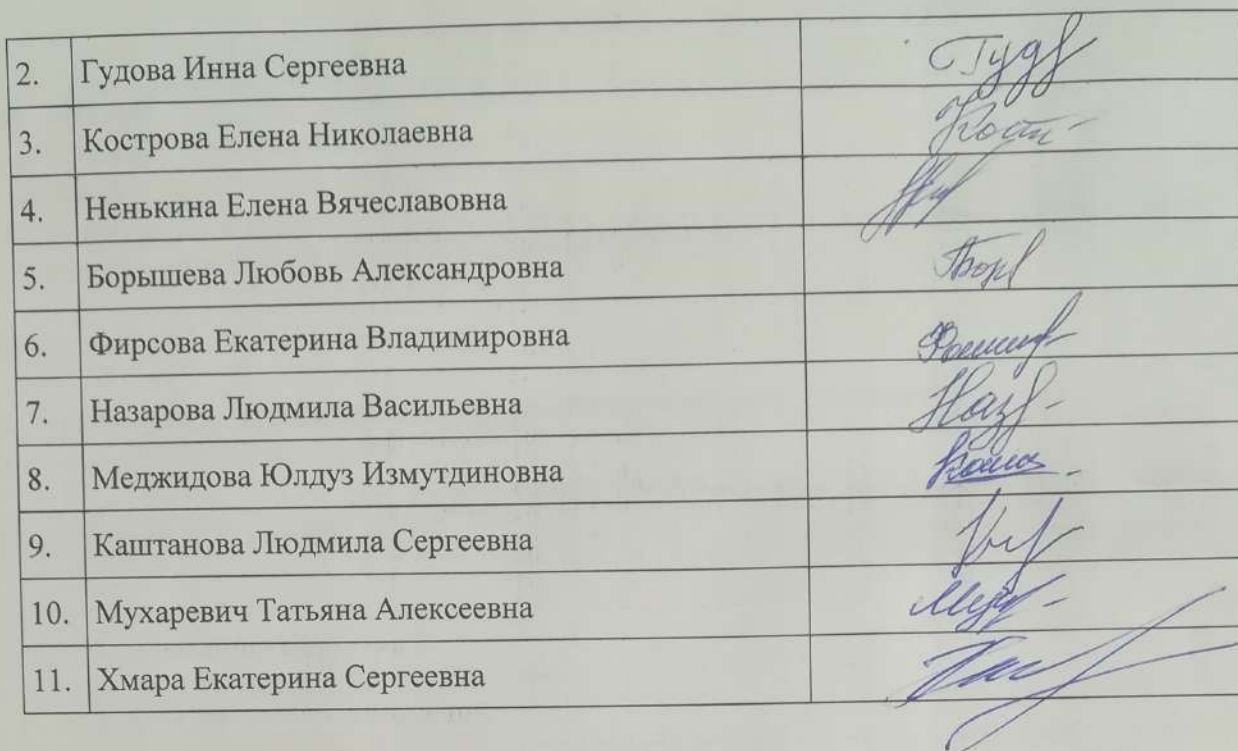 2. Гудова Инна Сергеевна
3. Кострова Елена Николаевна
4. Ненькина Елена Вячеславовна
5. Борышева Любовь Александровна
6. Фирсова Екатерина Владимировна
7. Назарова Людмила Васильевна
8. Меджидова Юлдуз Измутдиновна
9. Каштанова Людмила Сергеевна
10. Мухаревич Татьяна Алексеевна
11. Хмара Екатерина Сергеевна